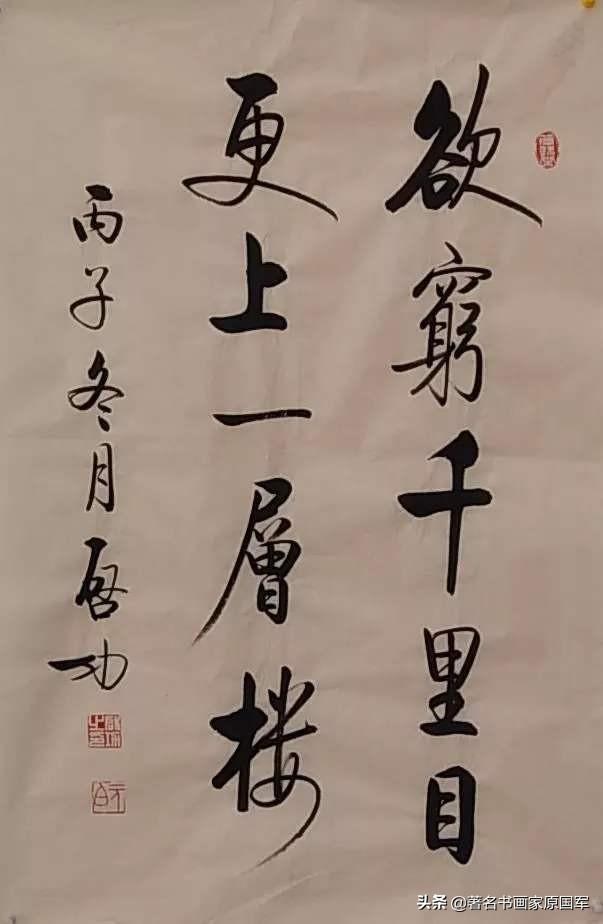 欲窮千里目
更上一層楼
丙子冬月啓功
头条 @著名书画家原国军